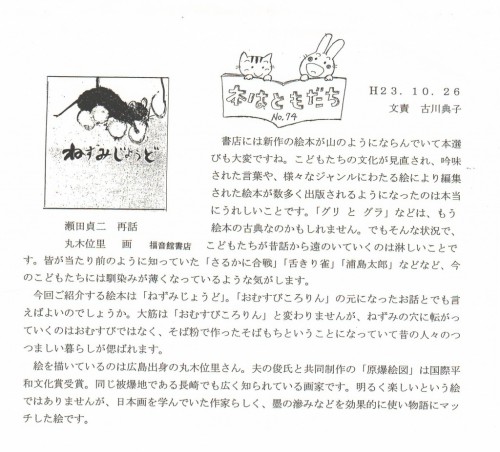 本はともだち
No.74
H23.10.26
文責　古川典子
ねずみじょうど
瀬田貞二　再話
丸木位里　画　福音館書店
書店には新作の絵本が山のようにならんでいて本選
びも大変ですね。こどもたちの文化が見直され、吟味
された言葉や、様々なジャンルにわたる絵により編集
された絵本が数多く出版されるようになったのは本当
にうれしいことです。「グリ と グラ」などは、もう
絵本の古典なのかもしれません。でもそんな状況で、
こどもたちが昔話から遠のいていくのは淋しいことで
す。皆が当たり前のように知っていた「さるかに合戦」「舌きり雀」「浦島太郎」などなど、今
のこどもたちには馴染みが薄くなっているような気がします。
今回ご紹介する絵本は「ねずみじょうど」。「おむすびころりん」の元になったお話とでも言
えばよいのでしょうか。大筋は「おむすびころりん」と変わりませんが、ねずみの穴に転がっ
ていくのはおむすびではなく、そば粉で作ったそばもちということになっていて昔の人々のつ
つましい暮らしが偲ばれます。
絵を描いているのは広島出身の丸木位里さん。夫の俊氏と共同制作の「原爆絵図」は国際平
和文化賞受賞。同じ被爆地である長崎でも広く知られている画家です。明るく楽しいという絵
ではありませんが、日本画を学んでいた作家らしく、墨の滲みなどを効果的に使い物語にマッ
チした絵です。